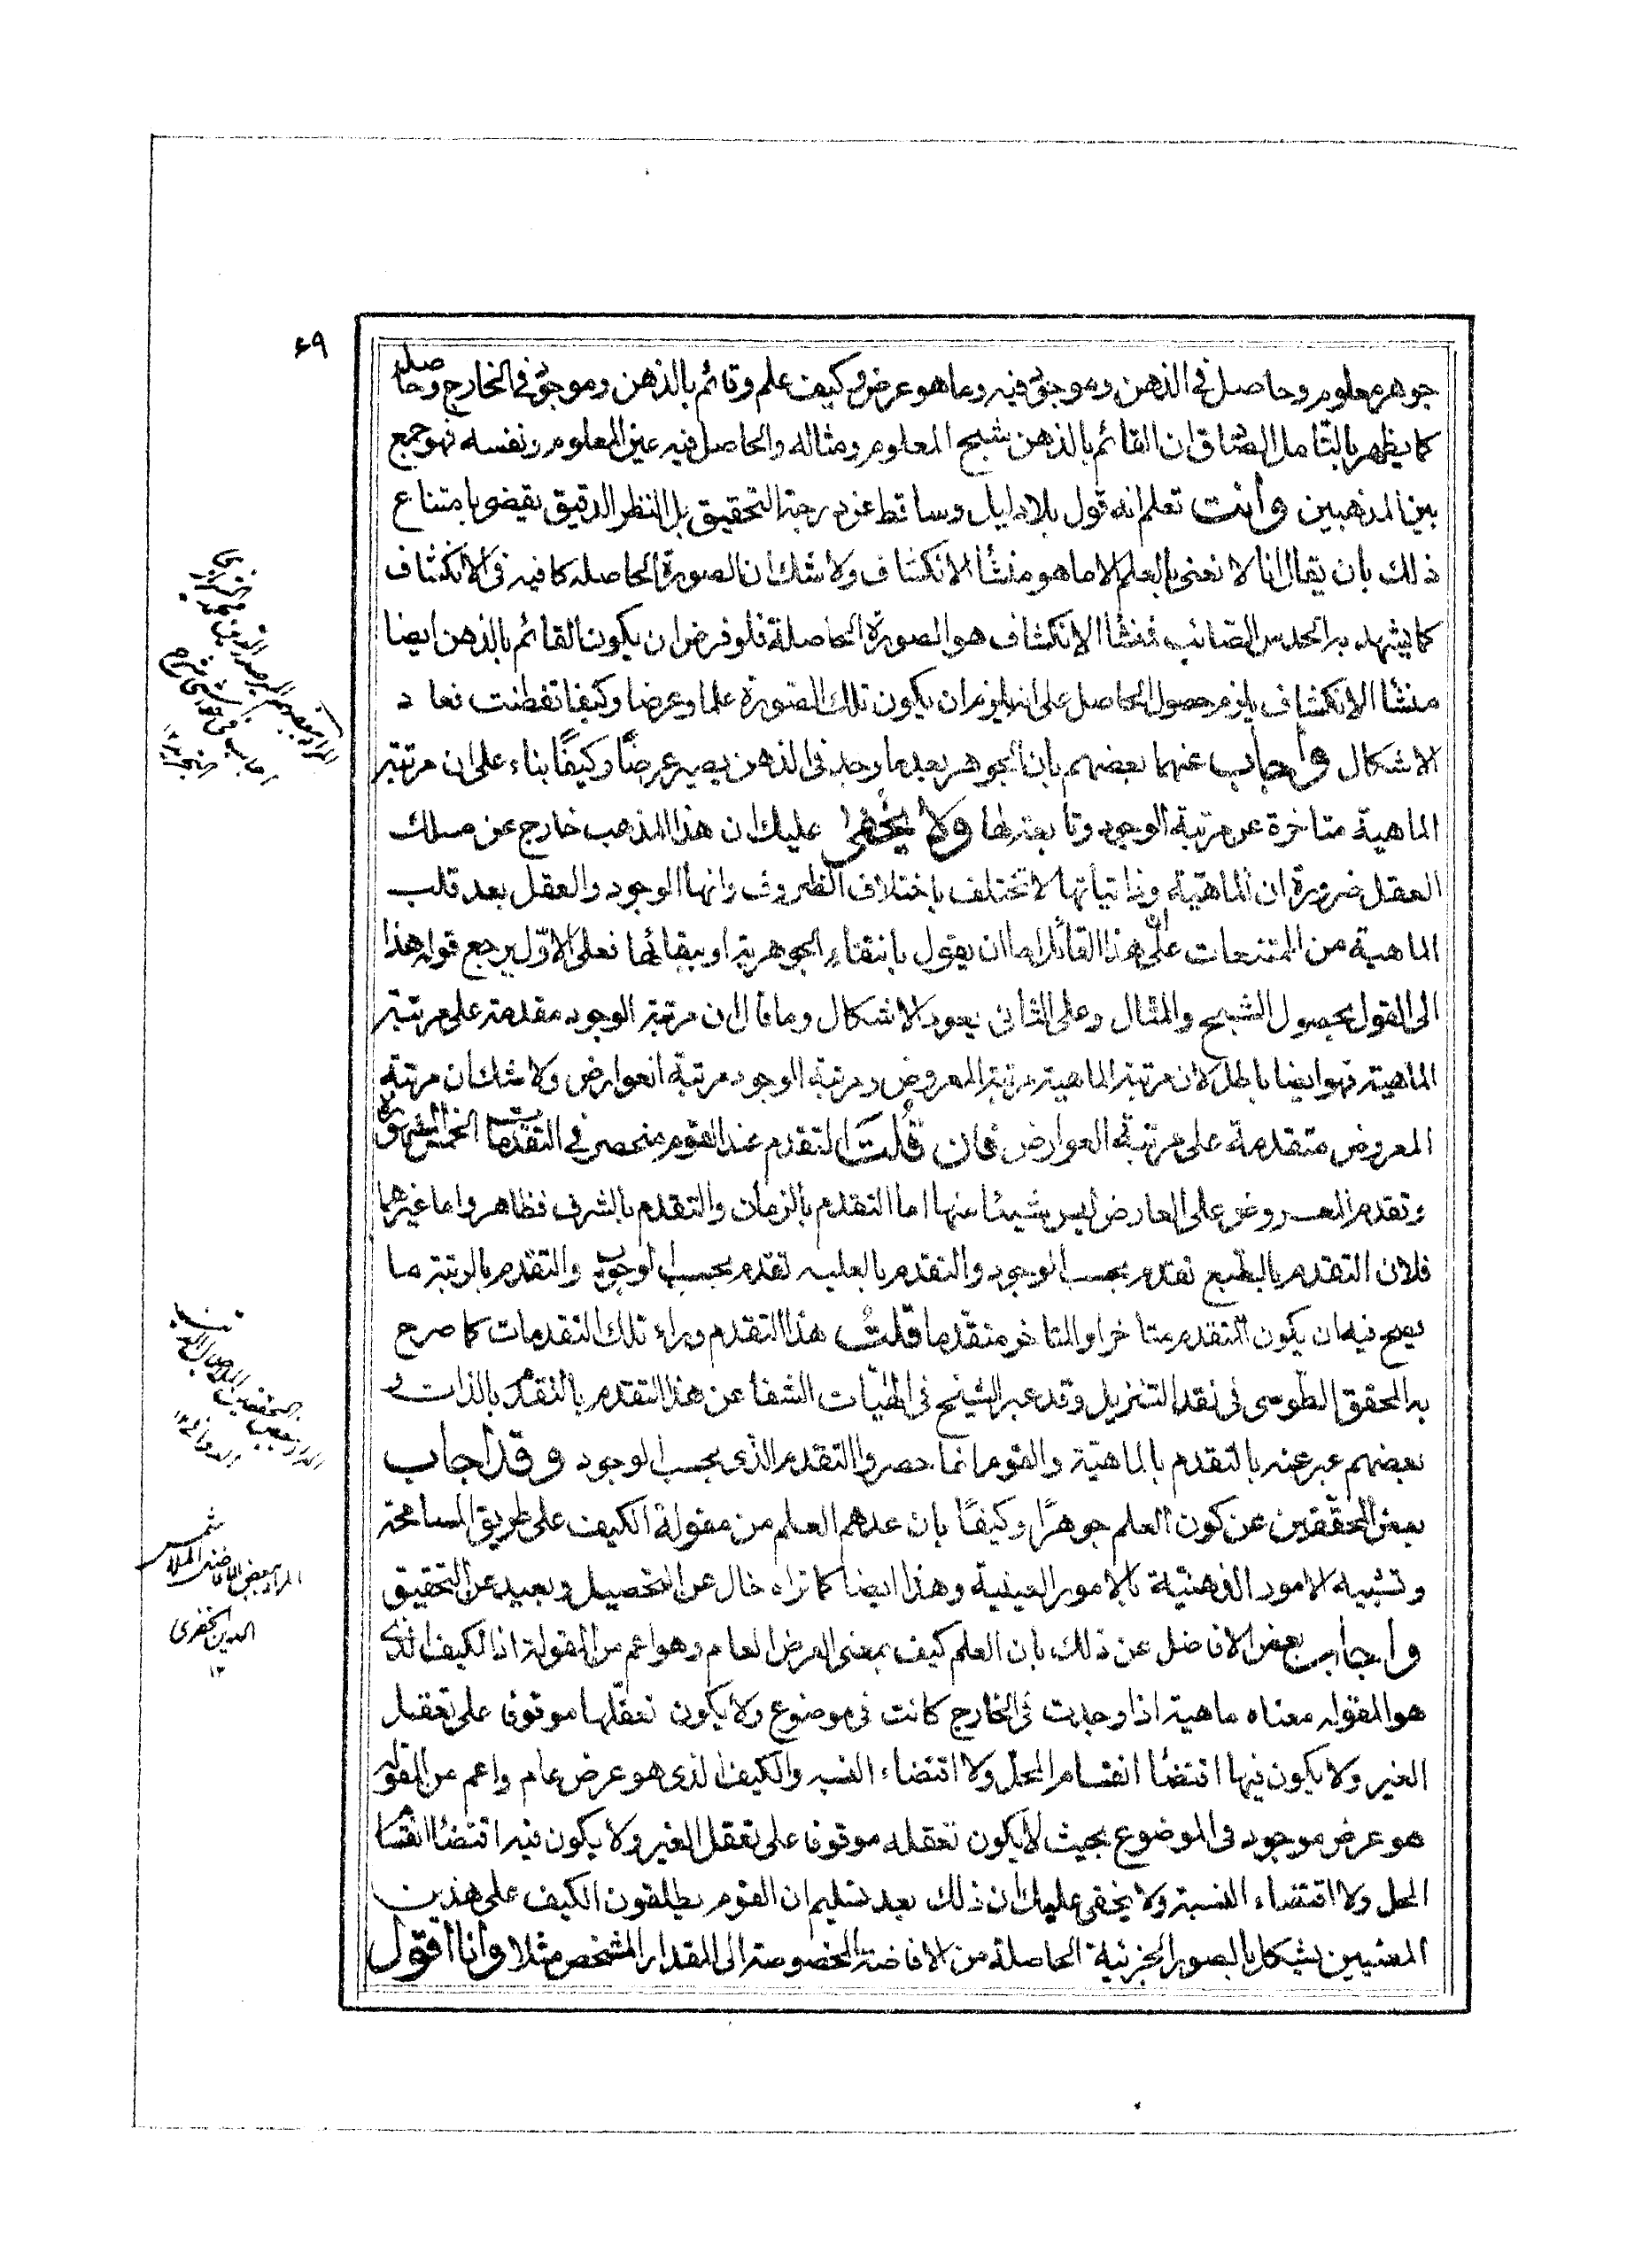 ٤٩
جوهر معلوم وحاصل فى الذهن وموجود فيه وما هو عرض وكيف علم وقائم بالذهن وموجود فى الخارج وحاصله
كما يظهر بالتامل الصادق ان القائم بالذهن شبح المعلوم ومثاله والحاصل فيه عين المعلوم ونفسه فهو جمع
بين المذهبين وأنت تعلم انه قول بلا دليل وساقط عن درجة التحقيق بل النظر الدقيق يقضى بامتناع
ذلك بان يقال انا لا نعنى بالعلم الا ما هو منشأ الانكشاف ولا شك ان الصورة الحاصله كافيه فى الانكشاف
كما يشهد به الحدس الصائب فمنشأ الانكشاف هو الصورة الحاصلة فلو فرض ان يكون القائم بالذهن ايضا
منشأ الانكشاف يلزم حصول الحاصل على انه يلزم ان يكون تلك الصورة علما وعرضا وكيفا تفطنت فعاد
الاشكال وأجاب عنها بعضهم بان الجوهر بعد ما وجد فى الذهن يصير عرضًا وكيفًا بناء على ان مرتبة
الماهية متاخرة عن مرتبة الوجود وتابعة لها ولا يخفى عليك ان هذا المذهب خارج عن مسلك
العقل ضرورة ان الماهيّة وذاتياتها لا تختلف باختلاف الظروف وانحاء الوجود والعقل بعد قلب
الماهية من الممتنعات على ان هذا القائل اما ان يقول بانتفاء الجوهرية او ببقائها فعلى الاوّل يرجع قوله هذا
الى القول بحصول الشبح والمثال وعلى الثانى يعود الاشكال وما قال ان مرتبة الوجود مقدمة على مرتبة
الماهية فهو ايضا باطل لان مرتبة الماهية مرتبة المعروض ومرتبة الوجود مرتبة العوارض ولا شك ان مرتبة
المعروض متقدمة على مرتبة العوارض فان قُلتَ التقدم عند القوم منحصر فى التقدمات الخمس المشهورة
وتقدم المعروض على العارض ليس شيئا منها اما التقدم بالزمان والتقدم بالشرف فظاهر واما غيرهما
فلان التقدم بالطبع تقدم بحسب الوجود والتقدم بالعليه تقدم بحسب الوجوب والتقدم بالرتبة ما
يصح فيه ان يكون المتقدم متاخرا والمتاخر متقدما قلتُ هذا التقدم وراء تلك التقدمات كما صرح
به المحقق الطوسى فى نقد التنزيل وقد عبر الشيخ فى الهيّات الشفا عن هذا التقدم بالتقدم بالذات و
بعضهم عبر عنه بالتقدم بالماهيّة والقوم انما حصروا التقدم الذى بحسب الوجود وقد أجاب
بعض المحققين عن كون العلم جوهرًا وكيفًا بان عدهم العلم من مقولة الكيف على طريق المسامحة
وتشبيه الامور الذهنيّة بالامور العينية وهذا ايضا كما تراه خال عن التحصيل وبعيد عن التحقيق
وأجاب بعض الافاضل عن ذلك بان العلم كيف بمعنى العرض العام وهو اعم من المقولة اذ الكيف الذى
هو المقوله معناه ماهية اذا وجدت فى الخارج كانت فى موضوع ولا يكون تعقّلها موقوفا على تعقل
الغير ولا يكون فيها اقتضأ انقسام المحل ولا اقتضاء النسبه والكيف الذى هو عرض عام واعم من المقوله
هو عرض موجود فى الموضوع بحيث لا يكون تعقله موقوفا على تعقل الغير ولا يكون فيه اقتضأ انقسام
المحل ولا اقتضاء النسبة ولا يخفى عليك ان ذلك بعد تسليم ان القوم يطلقون الكيف على هذين
المعنيين يشكل بالصور الجزئية الحاصلة من الاضافة المخصوصة الى المقدار المشخص مثلا وأنا أقول
المراد ببعض المحققين الجلال
الدوانى ١٢
المراد ببعض الافاضل الملا شمس
الدين الخفرى
١٢